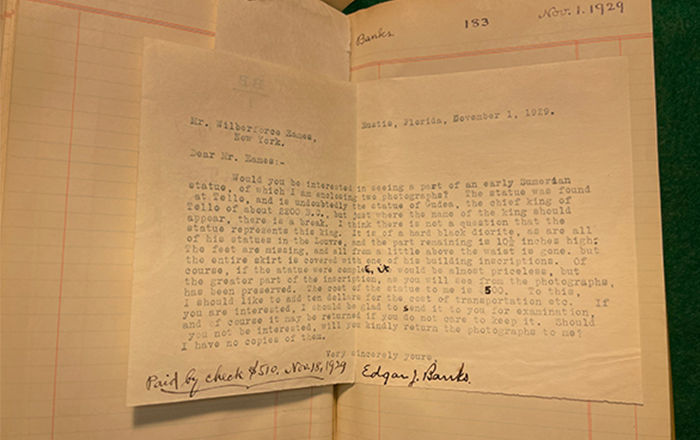 Banks. 183 Nov. 1. 1929
Eustis, Florida, November 1, 1929.
Mr. Wilberforce Eames,
New York.
Dear Mr. Eames:-
Would you be interested in seeing a part of an early Sumerian
statue, of which I am enclosing two photographs? The statue was found
at Tello, and is undoubtedly the statue of Gudea, the chief king of
Tello of about 2200 B.C., but just where the name of the king should
appear, there is a break. I think there is not a question that the
statue represents this king. It is of a hard black diorite, as are all
of his statues in the Louvre, and the part remaining is 10½ inches high.
The feet are missing, and all from a little above the waist is gone. but
the entire skirt is covered with one of his building inscriptions. Of
course, if the statue were complete, it would be almost priceless, but
the greater part of the inscription, as you will see from the photographs,
has been preserved. The cost of the statue to me is 500. To this,
I should like to add ten dollars for the cost of transportation etc. If
you are interested, I should be glad to send it to you for examination,
and of course it may be returned if you do not care to keep it. Should
you not be interested, will you kindly return the photographs to me?
I have no copies of them.
Very sincerely yours,
Paid by check $510. Nov. 18, 1929 Edgar J. Banks.